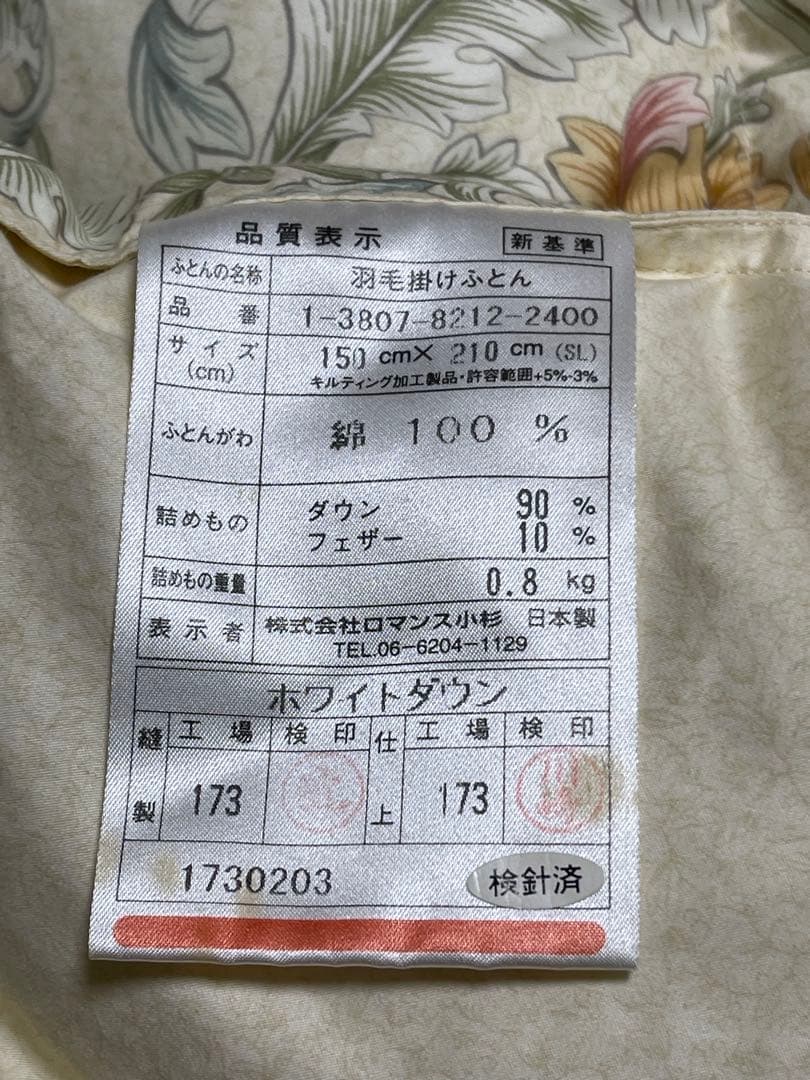 品質表示 新基準
ふとんの名称 羽毛掛けふとん
品番 1-3807-8212-2400
サイズ(cm) 150cm×210cm(SL)
キルティング加工製品・許容範囲+5%-3%
ふとんがわ 綿 100 %
詰めもの ダウン 90 %
フェザー 10 %
詰めもの重量 0.8 kg
表示者 株式会社ロマンス小杉 日本製
TEL.06-6204-1129
ホワイトダウン
縫製 工場 検印 仕上 工場 検印
173 173
1730203 検針済